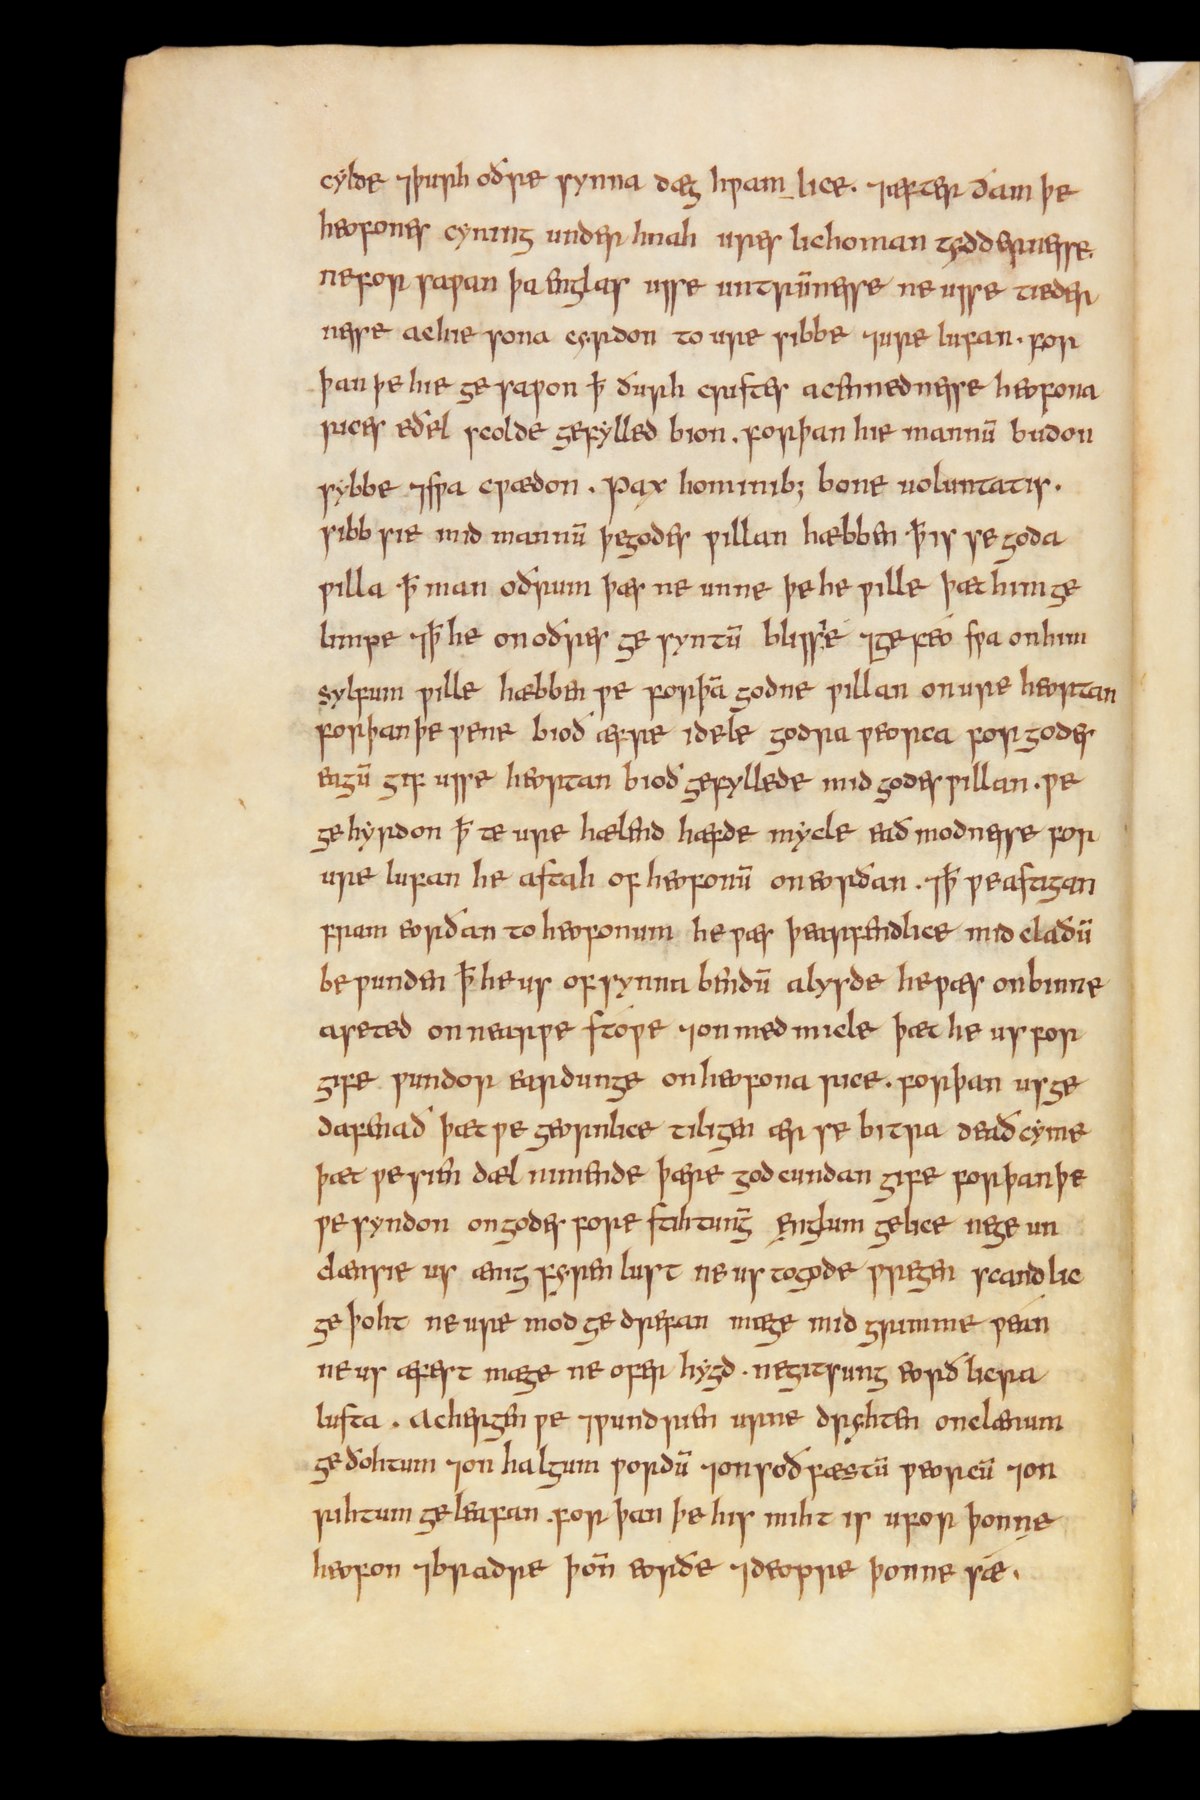 cylde ⁊ þurh oðre synna dæghƿamlice. ⁊ æfter ðam þe
heofones cyning underhnah ures lichoman tyddernesse.
ne forsaƿan þa englas usse untrūnesse ne usse tieder
nesse ac hie sona cyrdon to ure sibbe ⁊ ure lufan. for
þan þe hie gesaƿon ꝥ ðurh cristes acennednesse heofona
rices eðel scolde gefylled bion. forþan hie mannū budon
sybbe ⁊ sƿa cƿædon. Pax hominib; bone uoluntatis.
sibb sie mid mannū þe godes ƿillan hæbben ꝥ is se goda
ƿilla ꝥ man oðrum þæs ne unne þe he ƿille þæt him ge
limpe ⁊ ꝥ he on oðres gesyntū blissie ⁊ gefeo sƿa on him
sylfum ƿille hæbben ƿe forþā godne ƿillan on ure heortan
forþan þe ƿe ne bioð æfre idele godra ƿeorca for godes
eagū gif usse heortan bioð gefyllede mid godes ƿillan. ƿe
gehyrdon ꝥte ure hælend hæfde mycle eaðmodnesse for
ure lufan he astah of heofonū on eorðan. ⁊ ꝥ ƿe astigan
fram eorðan to heofonum he ƿæs þearfendlice mid claðū
beƿunden ꝥ he us of synna bendū alysde he ƿæs on binne
aseted on nearƿe stoƿe ⁊ on medmicle þæt he us for
gife ƿundor eardunge on heofona rice. forþan us ge
dafenað þæt ƿe geornlice tiligen ær se bitra deað cyme
þæt ƿe sien dæl nimende þære godcundan gife forþan þe
ƿe syndon on godes fore stihtung englum gelice ne ge un
clænsie us ænig fyren lust ne us to gode ƿregen scandlic
geþoht ne ure mod gedrefan mæge mid grumme ƿean
ne us æfest mæge ne oferhygd. ne gitsung eorðlicra
lusta. Ac hergen ƿe ⁊ ƿundrien urne dryhten on clænum
geðohtum ⁊ on halgum ƿordū ⁊ on soðfæstū ƿeorcū ⁊ on
rihtum geleafan. forþan þe his miht is ufor þonne
heofon ⁊ bradre þōn eorðe ⁊ deopre þonne sæ.